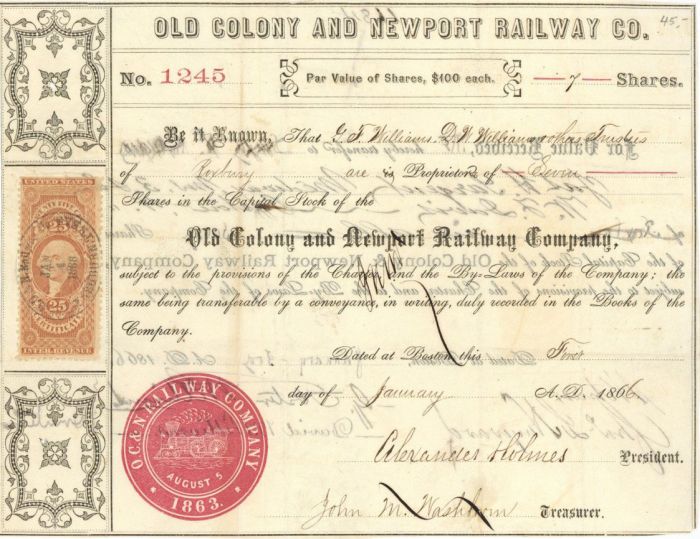 45,-
OLD COLONY AND NEWPORT RAILWAY CO.
No. 1245 Par Value of Shares, $100 each. 7 Shares.
Be it Known, That G. F. Williams D. W. Williams & others Trustees
of Roxbury are Proprietors of Seven
Shares in the Capital Stock of the
Old Colony and Newport Railway Company,
subject to the provisions of the Charter and the By-Laws of the Company; the
same being transferable by a conveyance, in writing, duly recorded in the Books of the
Company.
Dated at Boston this First
day of January A.D. 1866
Alexander Holmes President.
John M. Washburn Treasurer.
UNITED STATES
TWENTY FIVE
JAN
1868
25
CERTIFICATE
INTER REVENUE
O C & N RAILWAY COMPANY
AUGUST 5
1863.